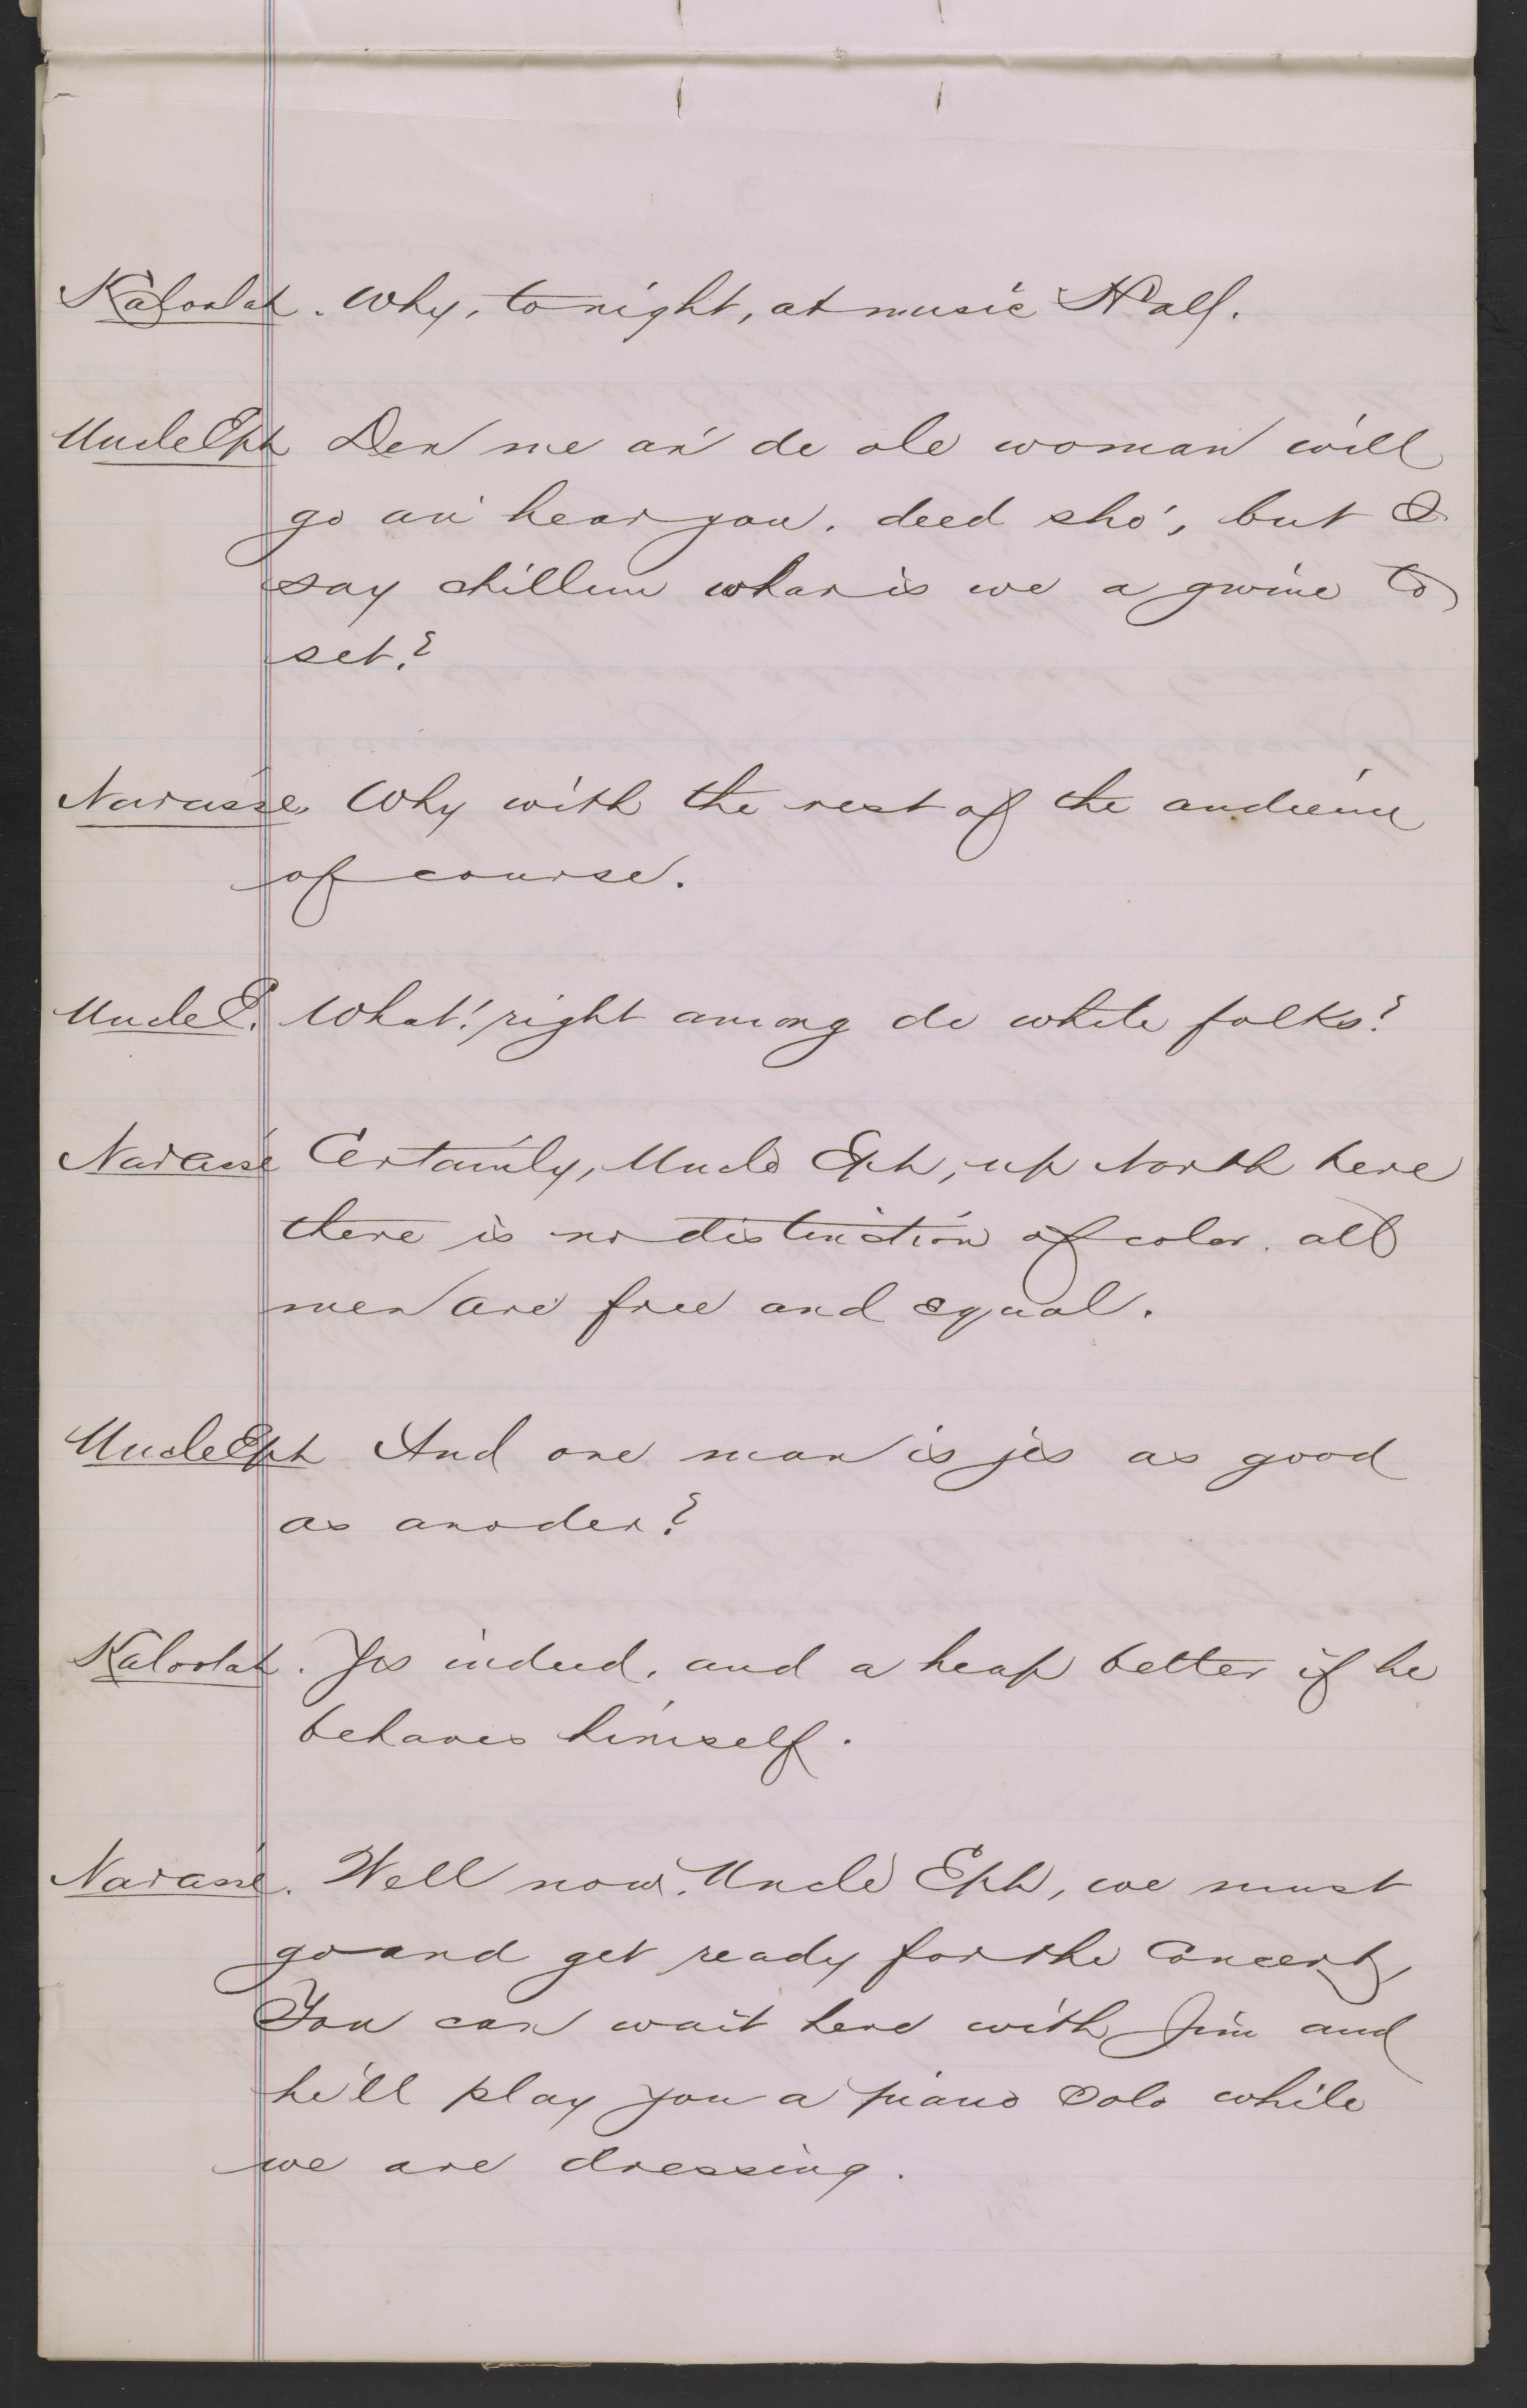 Kaloolah. Why, tonight, at music Hall.
Uncle Eph Den me an' de ole woman will
go an' hear you. deed sho', but I
say chillun whar is we a gwine to
set?
Narcisse Why with the rest of the audience
of course.
Uncle E. What! right among de white folks?
Narcisse Certainly, Uncle Eph, up North here
there is no distinction of color. all
men are free and equal.
Uncle Eph And one man is jes as good
as anoder?
Kaloolah. Yes indeed, and a heap better if he
behaves himself.
Narcisse. Well now, Uncle Eph, we must
go and get ready for the Concert,
You can wait here with Jim and
he'll play you a piano Solo while
we are dressing.